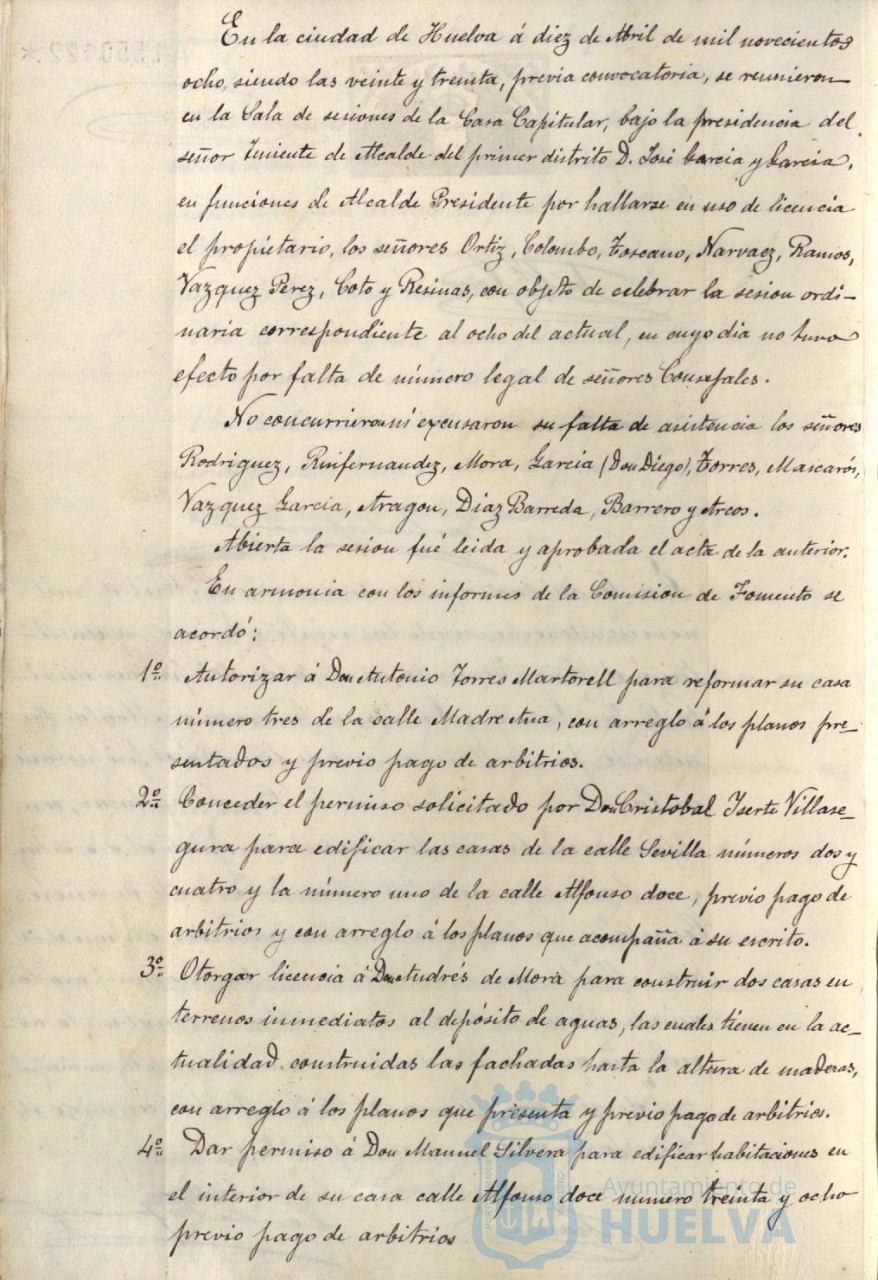 En la ciudad de Huelva á diez de Abril de mil novecientos
ocho, siendo las veinte y treinta, previa convocatoria, se reunieron
en la Sala de sesiones de la Casa Capitular, bajo la presidencia del
señor Teniente de Alcalde del primer distrito D. José Garcia y Garcia,
en funciones de Alcalde Presidente por hallarse en uso de licencia
el propietario, los señores Ortiz, Colombo, Toscano, Narvaez, Ramos,
Vazquez Perez, Coto y Resinas, con objeto de celebrar la sesion ordi-
naria correspondiente al ocho del actual, en cuyo dia no tuvo
efecto por falta de número legal de señores Consejales.
No concurrieron ni excusaron su falta de asistencia los señores
Rodriguez, Ruifernandez, Mora, Garcia (Don Diego), Torres, Mascarós,
Vazquez Garcia, Aragon, Diaz Barreda, Barrero y Arcos.
Abierta la sesion fué leida y aprobada el acta de la anterior.
En armonia con los informes de la Comision de Fomento se
acordó:
1º Autorizar á Don Antonio Torres Martorell para reformar su casa
número tres de la calle Madre Ana, con arreglo á los planos pre-
sentados y previo pago de arbitrios.
2º Conceder el permiso solicitado por Don Cristobal Iserte Villase-
gura para edificar las casas de la calle Sevilla números dos y
cuatro y la número uno de la calle Alfonso doce, previo pago de
arbitrios y con arreglo á los planos que acompaña á su escrito.
3º Otorgar licencia á Don Andrés de Mora para construir dos casas en
terrenos inmediatos al depósito de aguas, las cuales tienen en la ac-
tualidad construidas las fachadas hasta la altura de maderas,
con arreglo á los planos que presenta y previo pago de arbitrios.
4º Dar permiso á Don Manuel Silvera para edificar habitaciones en
el interior de su casa calle Alfonso doce numero treinta y ocho
previo pago de arbitrios
Ayuntamiento de
HUELVA